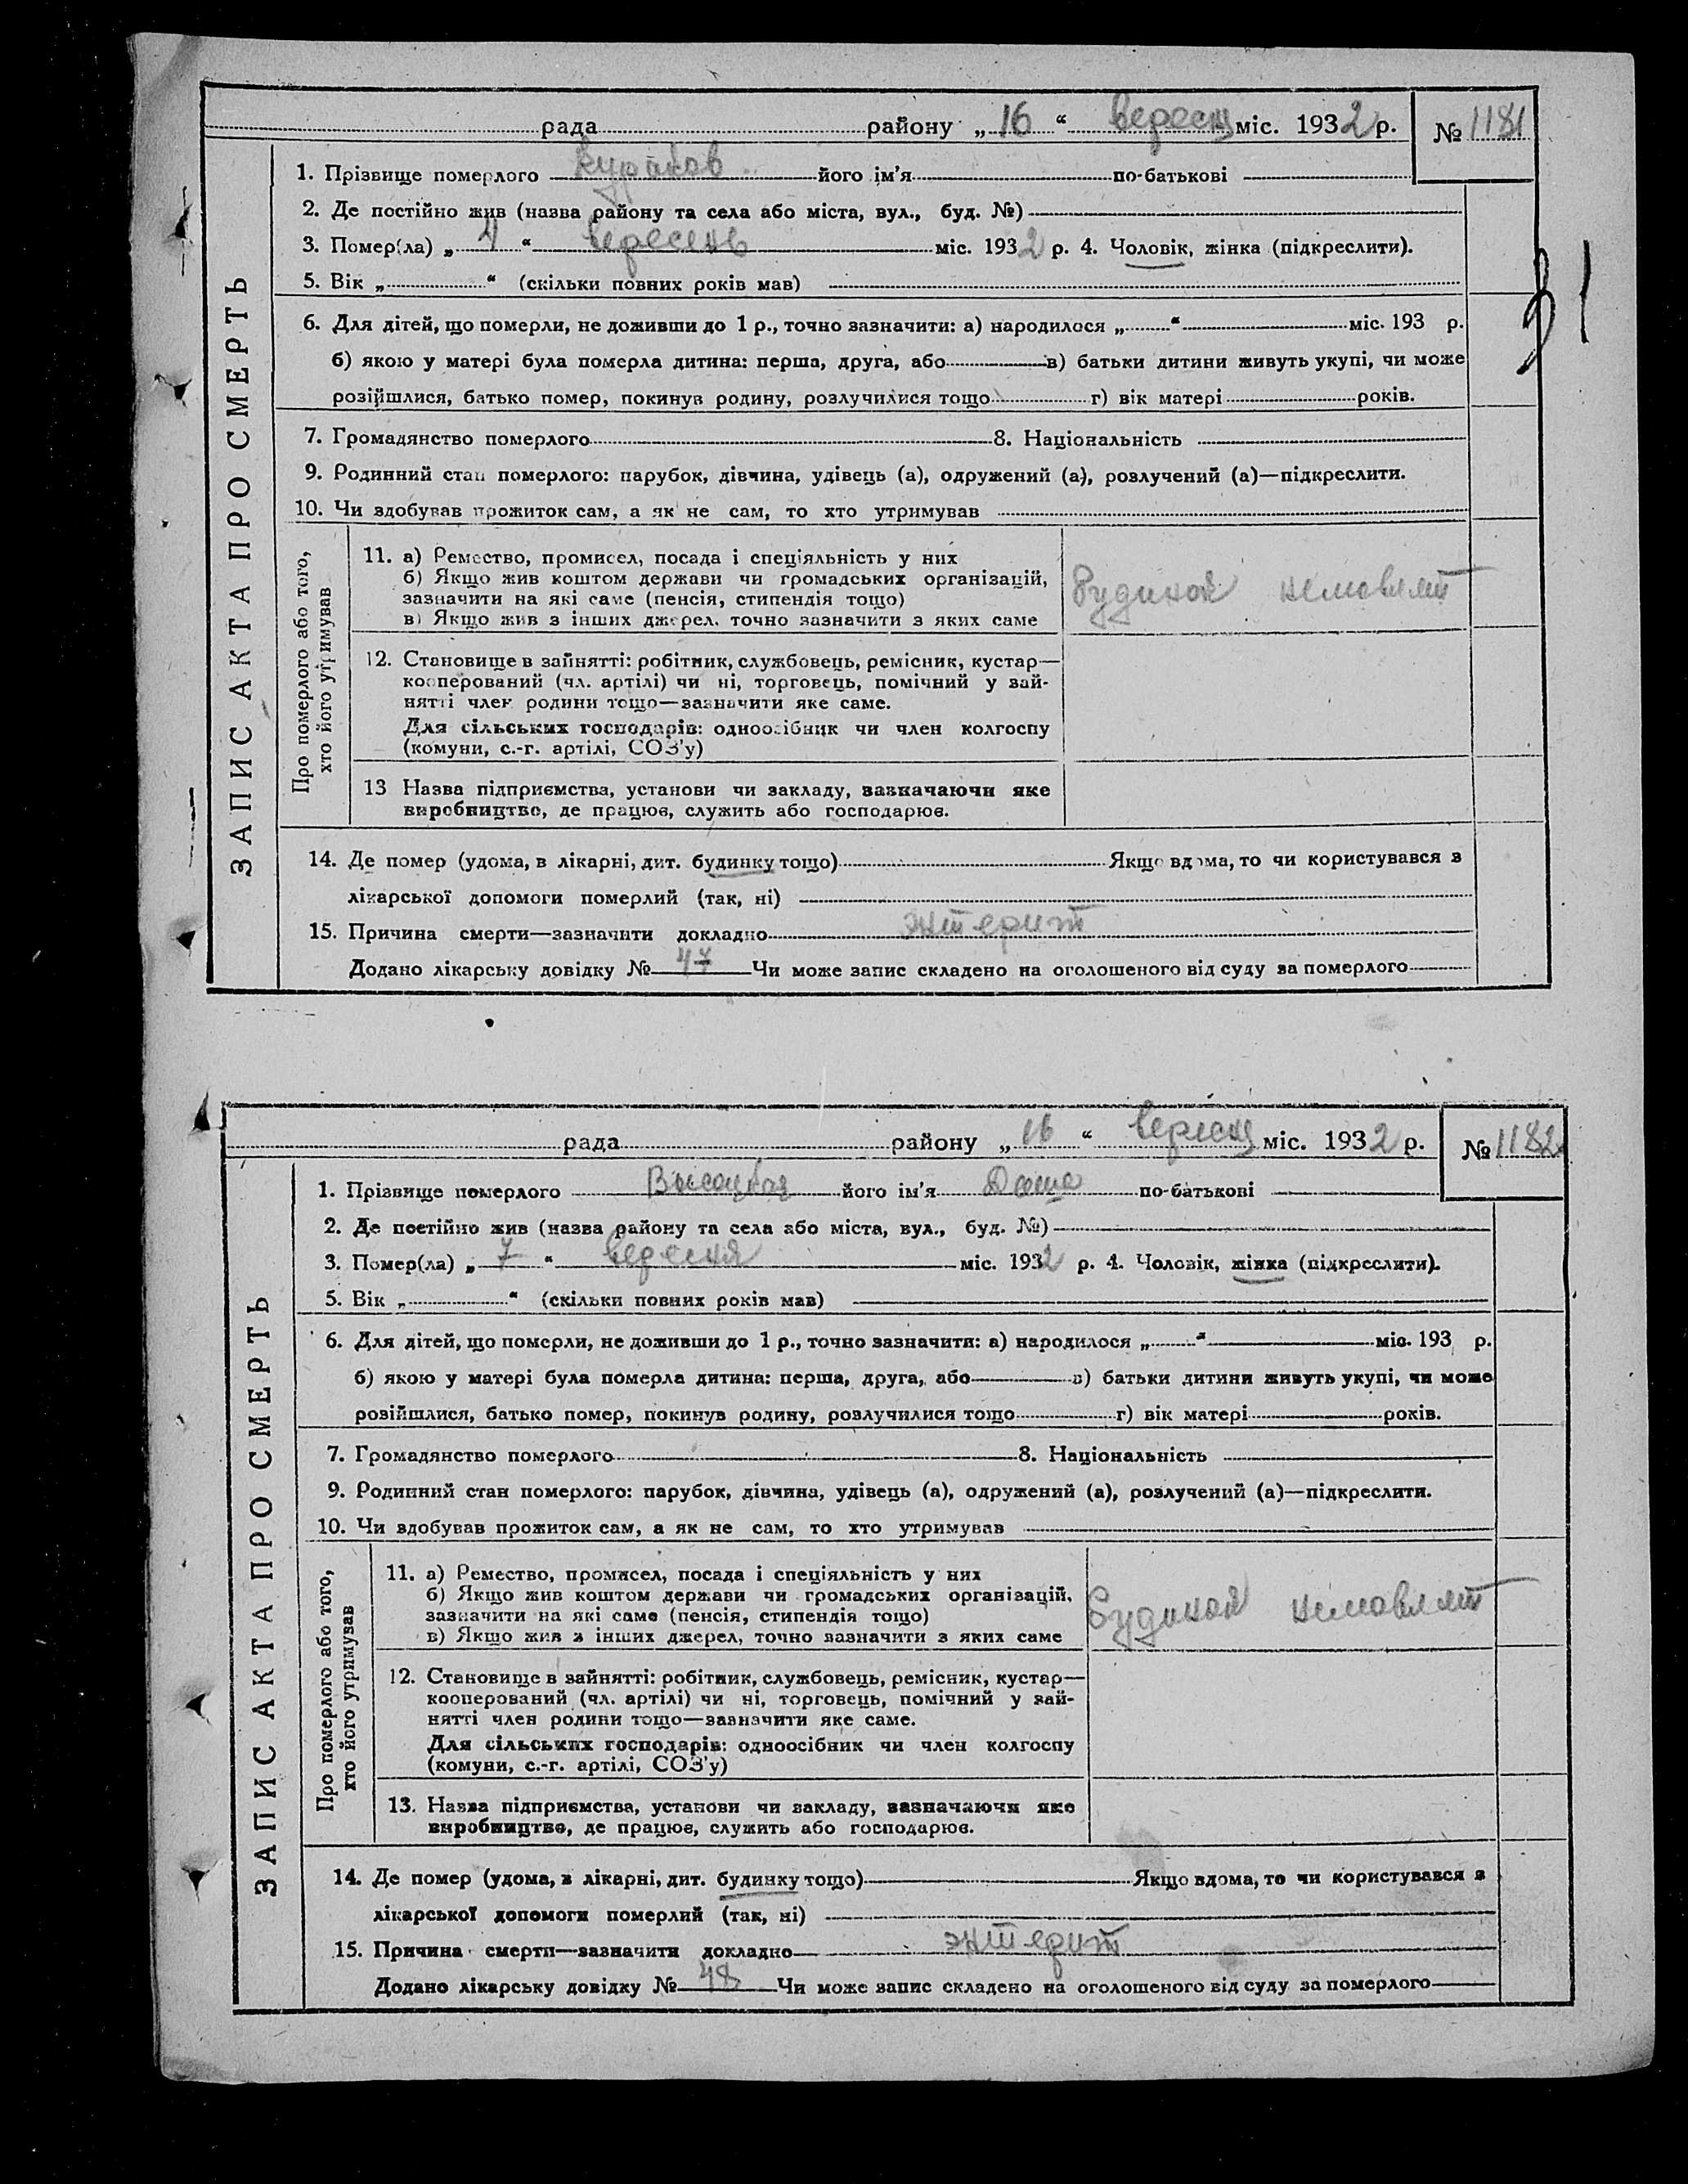 рада району „ 16 “ вересня міс. 1932 р. № 1181
1. Прізвище померлого Кураков його ім'я по-батькові
2. Де постійно жив (назва району та села або міста, вул., буд. №)
3. Помер(ла) „ 4 “ вересень міс. 1932 р. 4. Чоловік, жінка (підкреслити).
5. Вік „ “ (скільки повних років мав)
6. Для дітей, що померли, не доживши до 1 р., точно зазначити: а) народилося „ “ міс. 193 р.
б) якою у матері була померла дитина: перша, друга, або в) батьки дитини живуть укупі, чи може
розійшлися, батько помер, покинув родину, розлучилися тощо г) вік матері років.
7. Громадянство померлого 8. Національність
9. Родинний стан померлого: парубок, дівчина, удівець (а), одружений (а), розлучений (а)—підкреслити.
10. Чи здобував прожиток сам, а як не сам, то хто утримував
ЗАПИС АКТА ПРО СМЕРТЬ
Про померлого або того,
хто його утримував
11. а) Ремество, промисел, посада і спеціяльність у них
б) Якщо жив коштом держави чи громадських організацій,
зазначити на які саме (пенсія, стипендія тощо)
в) Якщо жив з інших джерел, точно зазначити з яких саме
Будинок немовлят
12. Становище в зайнятті: робітник, службовець, ремісник, кустар—
кооперований (чл. артілі) чи ні, торговець, помічний у зай-
нятті член родини тощо—зазначити яке саме.
Для сільських господарів: одноосібник чи член колгоспу
(комуни, с.-г. артілі, СОЗ'у)
13 Назва підприємства, установи чи закладу, зазначаючи яке
виробництво, де працює, служить або господарює.
14. Де помер (удома, в лікарні, дит. будинку тощо) Якщо вдома, то чи користувався з
лікарської допомоги померлий (так, ні)
15. Причина смерти—зазначити докладно энтерит
Додано лікарську довідку № 47 Чи може запис складено на оголошеного від суду за померлого
31
рада району „ 16 “ вересня міс. 1932 р. № 1182
1. Прізвище померлого Высоцкая його ім'я Даша по-батькові
2. Де постійно жив (назва району та села або міста, вул., буд. №)
3. Помер(ла) „ 7 “ вересня міс. 1932 р. 4. Чоловік, жінка (підкреслити).
5. Вік „ “ (скільки повних років мав)
6. Для дітей, що померли, не доживши до 1 р., точно зазначити: а) народилося „ “ міс. 193 р.
б) якою у матері була померла дитина: перша, друга, або в) батьки дитини живуть укупі, чи може
розійшлися, батько помер, покинув родину, розлучилися тощо г) вік матері років.
7. Громадянство померлого 8. Національність
9. Родинний стан померлого: парубок, дівчина, удівець (а), одружений (а), розлучений (а)—підкреслити.
10. Чи здобував прожиток сам, а як не сам, то хто утримував
ЗАПИС АКТА ПРО СМЕРТЬ
Про померлого або того,
хто його утримував
11. а) Ремество, промисел, посада і спеціяльність у них
б) Якщо жив коштом держави чи громадських організацій,
зазначити на які саме (пенсія, стипендія тощо)
в) Якщо жив з інших джерел, точно зазначити з яких саме
Будинок немовлят
12. Становище в зайнятті: робітник, службовець, ремісник, кустар—
кооперований (чл. артілі) чи ні, торговець, помічний у зай-
нятті член родини тощо—зазначити яке саме.
Для сільських господарів: одноосібник чи член колгоспу
(комуни, с.-г. артілі, СОЗ'у)
13. Назва підприємства, установи чи закладу, зазначаючи яке
виробництво, де працює, служить або господарює.
14. Де помер (удома, в лікарні, дит. будинку тощо) Якщо вдома, то чи користувався з
лікарської допомоги померлий (так, ні)
15. Причина смерти—зазначити докладно энтерит
Додано лікарську довідку № 48 Чи може запис складено на оголошеного від суду за померлого